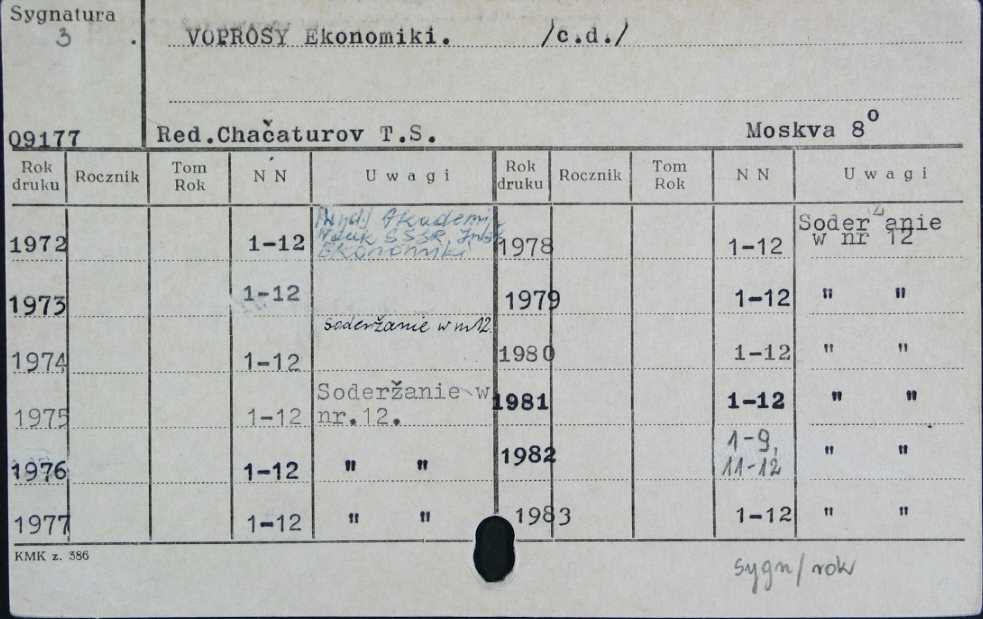 Sygnatura
3 .
VOPROSY Ekonomiki. /c.d./
09177 Red.Chačaturov T.S. Moskva 8°
Rok druku Rocznik Tom Rok N N Uwagi Rok druku Rocznik Tom Rok N N Uwagi
1972 1-12 Akademii
Nauk SSSR Inst.
Ekonomiki
1973 1-12
soderžanie w nr 12
1974 1-12
1975 1-12 Soderžanie w
nr.12.
1976 1-12 " "
1977 1-12 " "
1978 1-12 Soderžanie
w nr 12
1979 1-12 " "
1980 1-12 " "
1981 1-12 " "
1982 1-9, " "
11-12
1983 1-12 " "
KMK z. 386
sygn/rok